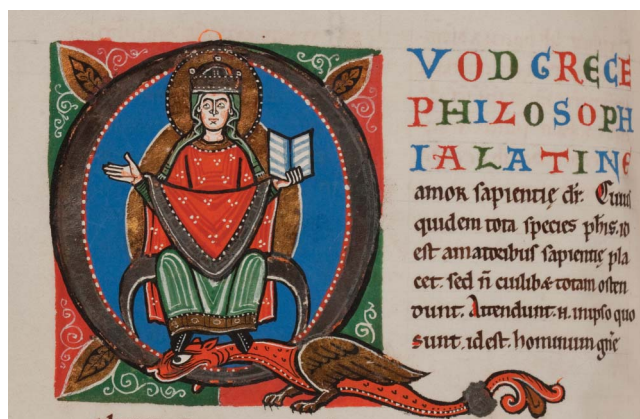 QVOD GRECE
PHILOSOPH
IA LATINE
amor sapientię dr̄. Cuiuſ
quidem tota ſpecieſ
eſt amatoribuſ ſapientię pla
cet. ſed n̄ cuilib& totam oſten
dunt. Attendunt .n. in ipſo quo
ſunt. id eſt. hominum